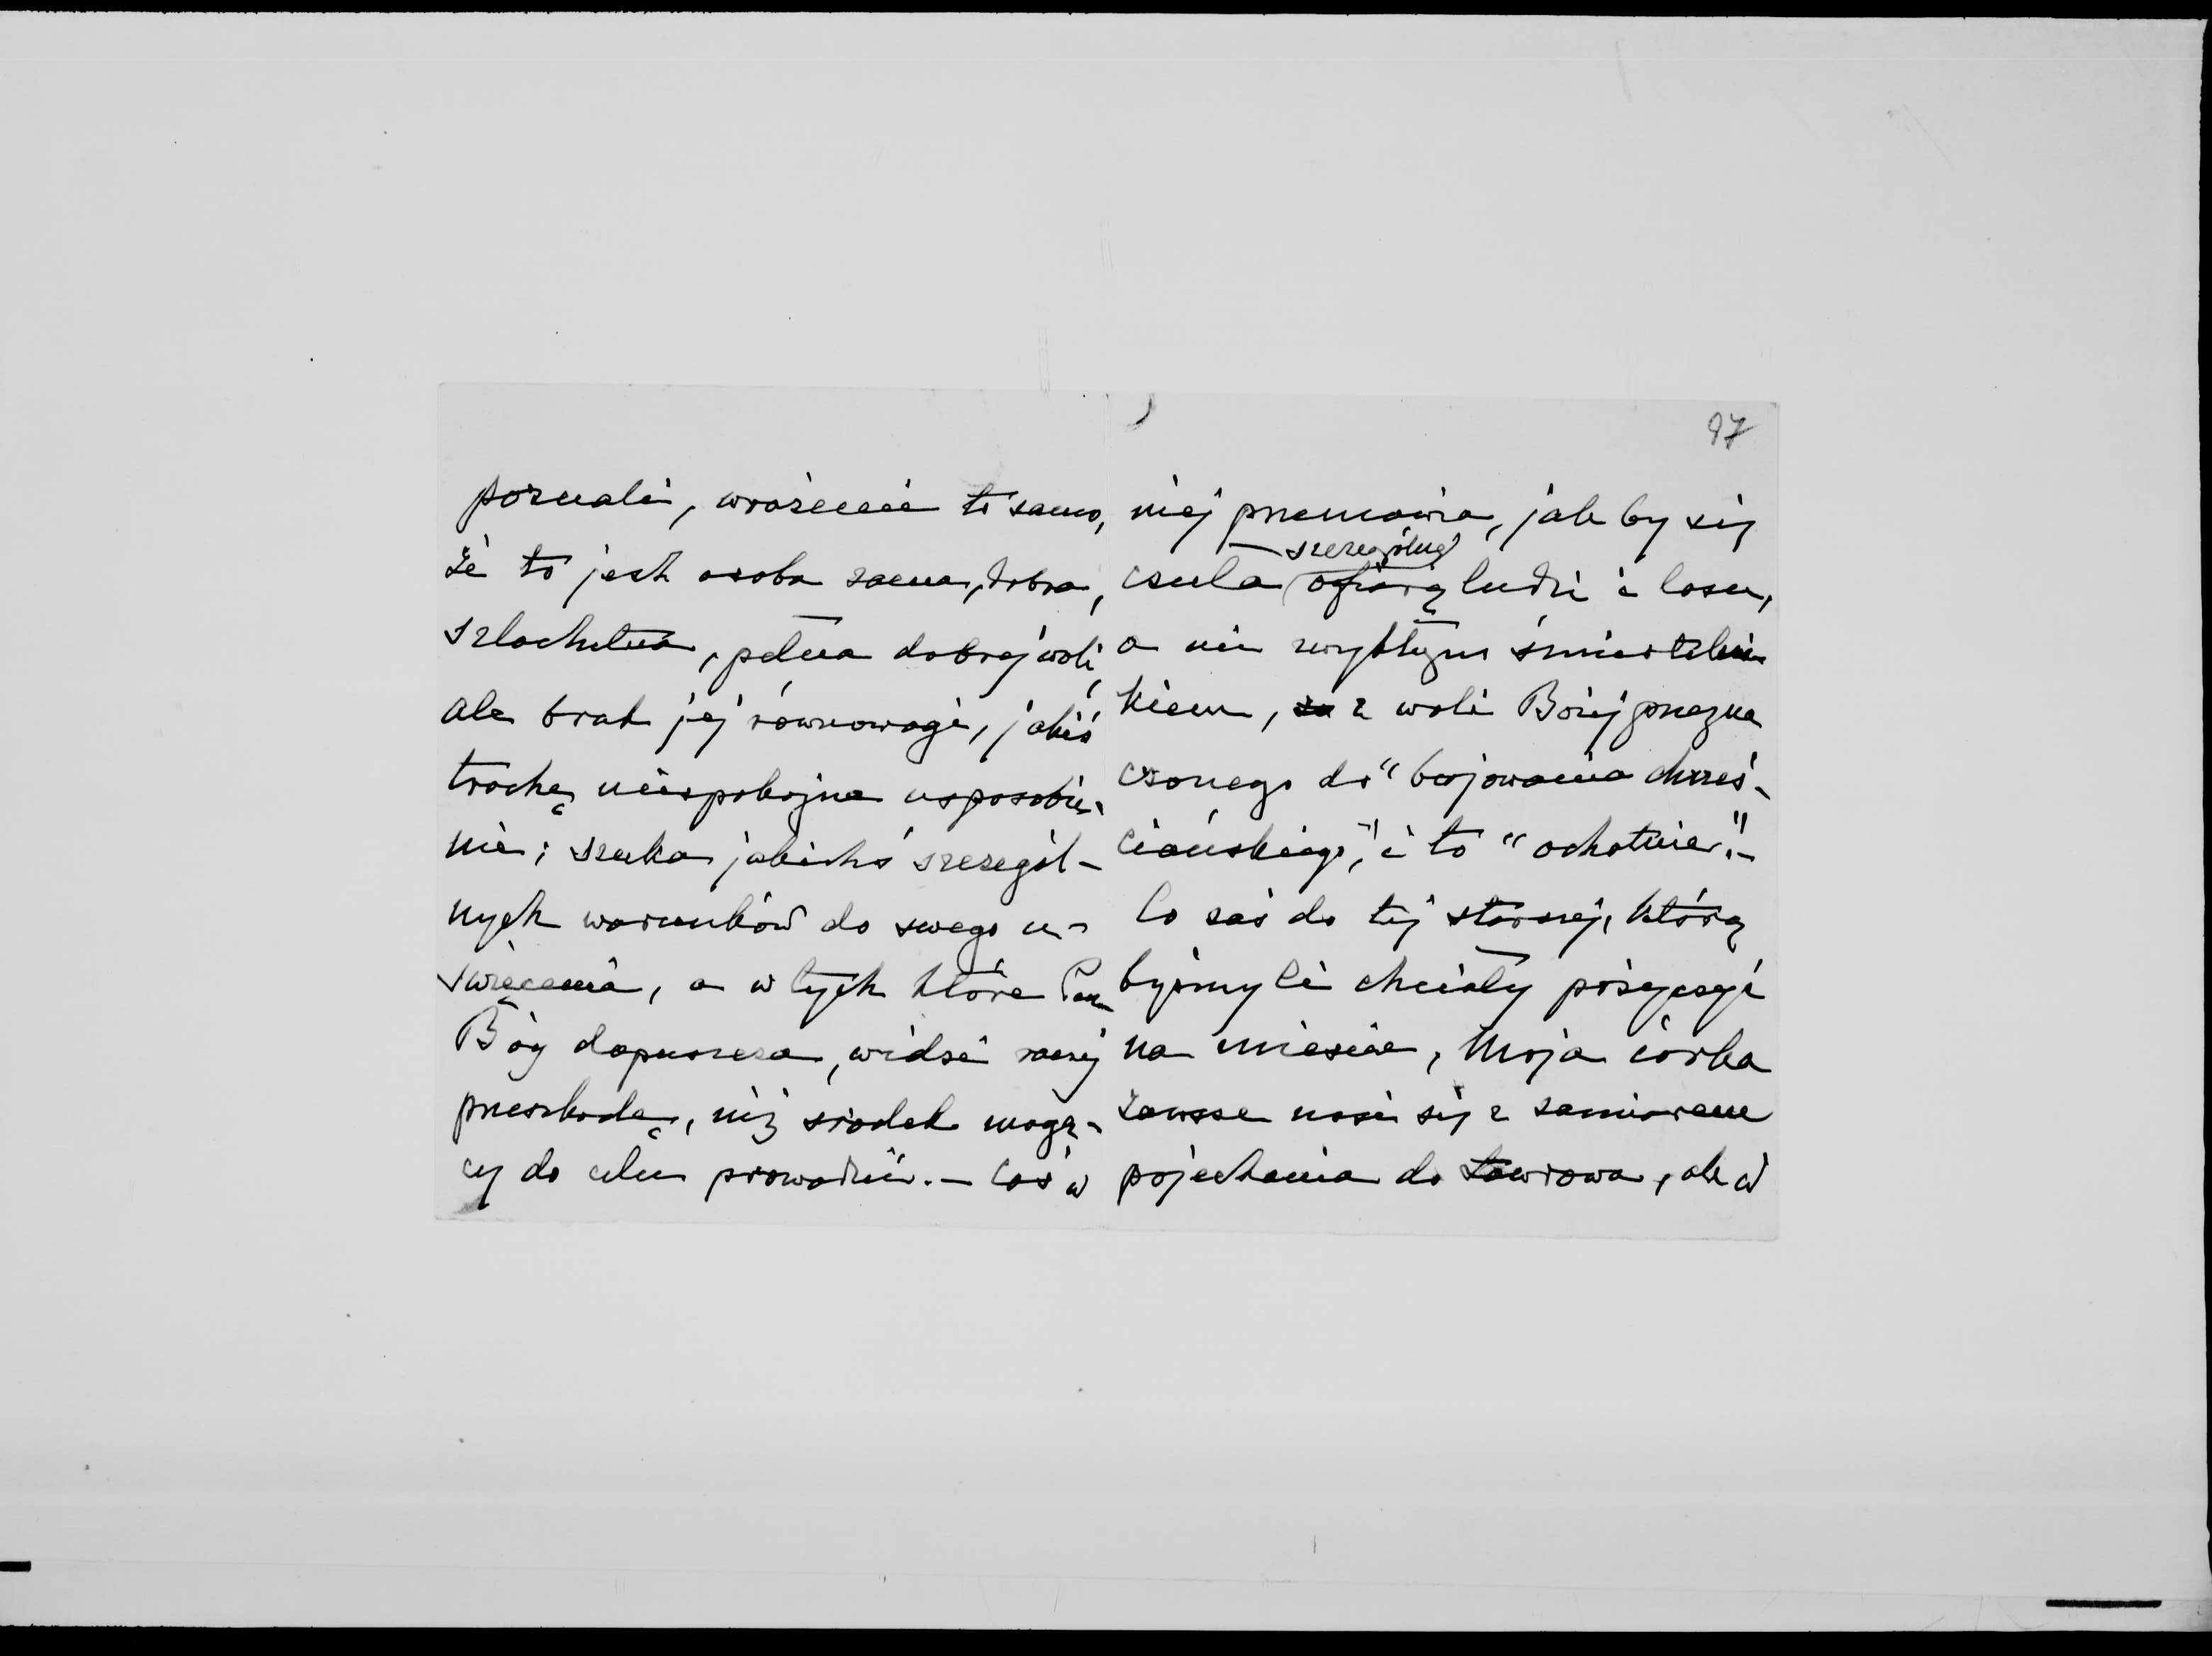 poznali, wrażenie to samo,
że to jest osoba zacna, dobra,
szlachetna, pełna dobrej woli,
ale brak jej równowagi, jakieś
trochę niespokojne usposobie-
nie; szuka jakichś szczegól-
nych warunków do swego u-
święcenia, a w tych które Pan
Bóg dopuszcza, widzi raczej
przeszkodę, niż środek mogą-
cy do celu prowadzić. – Coś w
97
niej przemawia, jak by się
szczególną
czuła ofiarą ludzi i losu,
a nie zwykłym śmierteln
kiem, z woli Bożej przezna
czonego do "bojowania chrześ-
ciańskiego", i to "ochotnie". –
Co zaś do tej starszej, którą
byśmy li chciały pożyczyć
na miesiąc, moja córka
zawsze nosi się z zamiarem
pojechania do Ławrowa, ale w